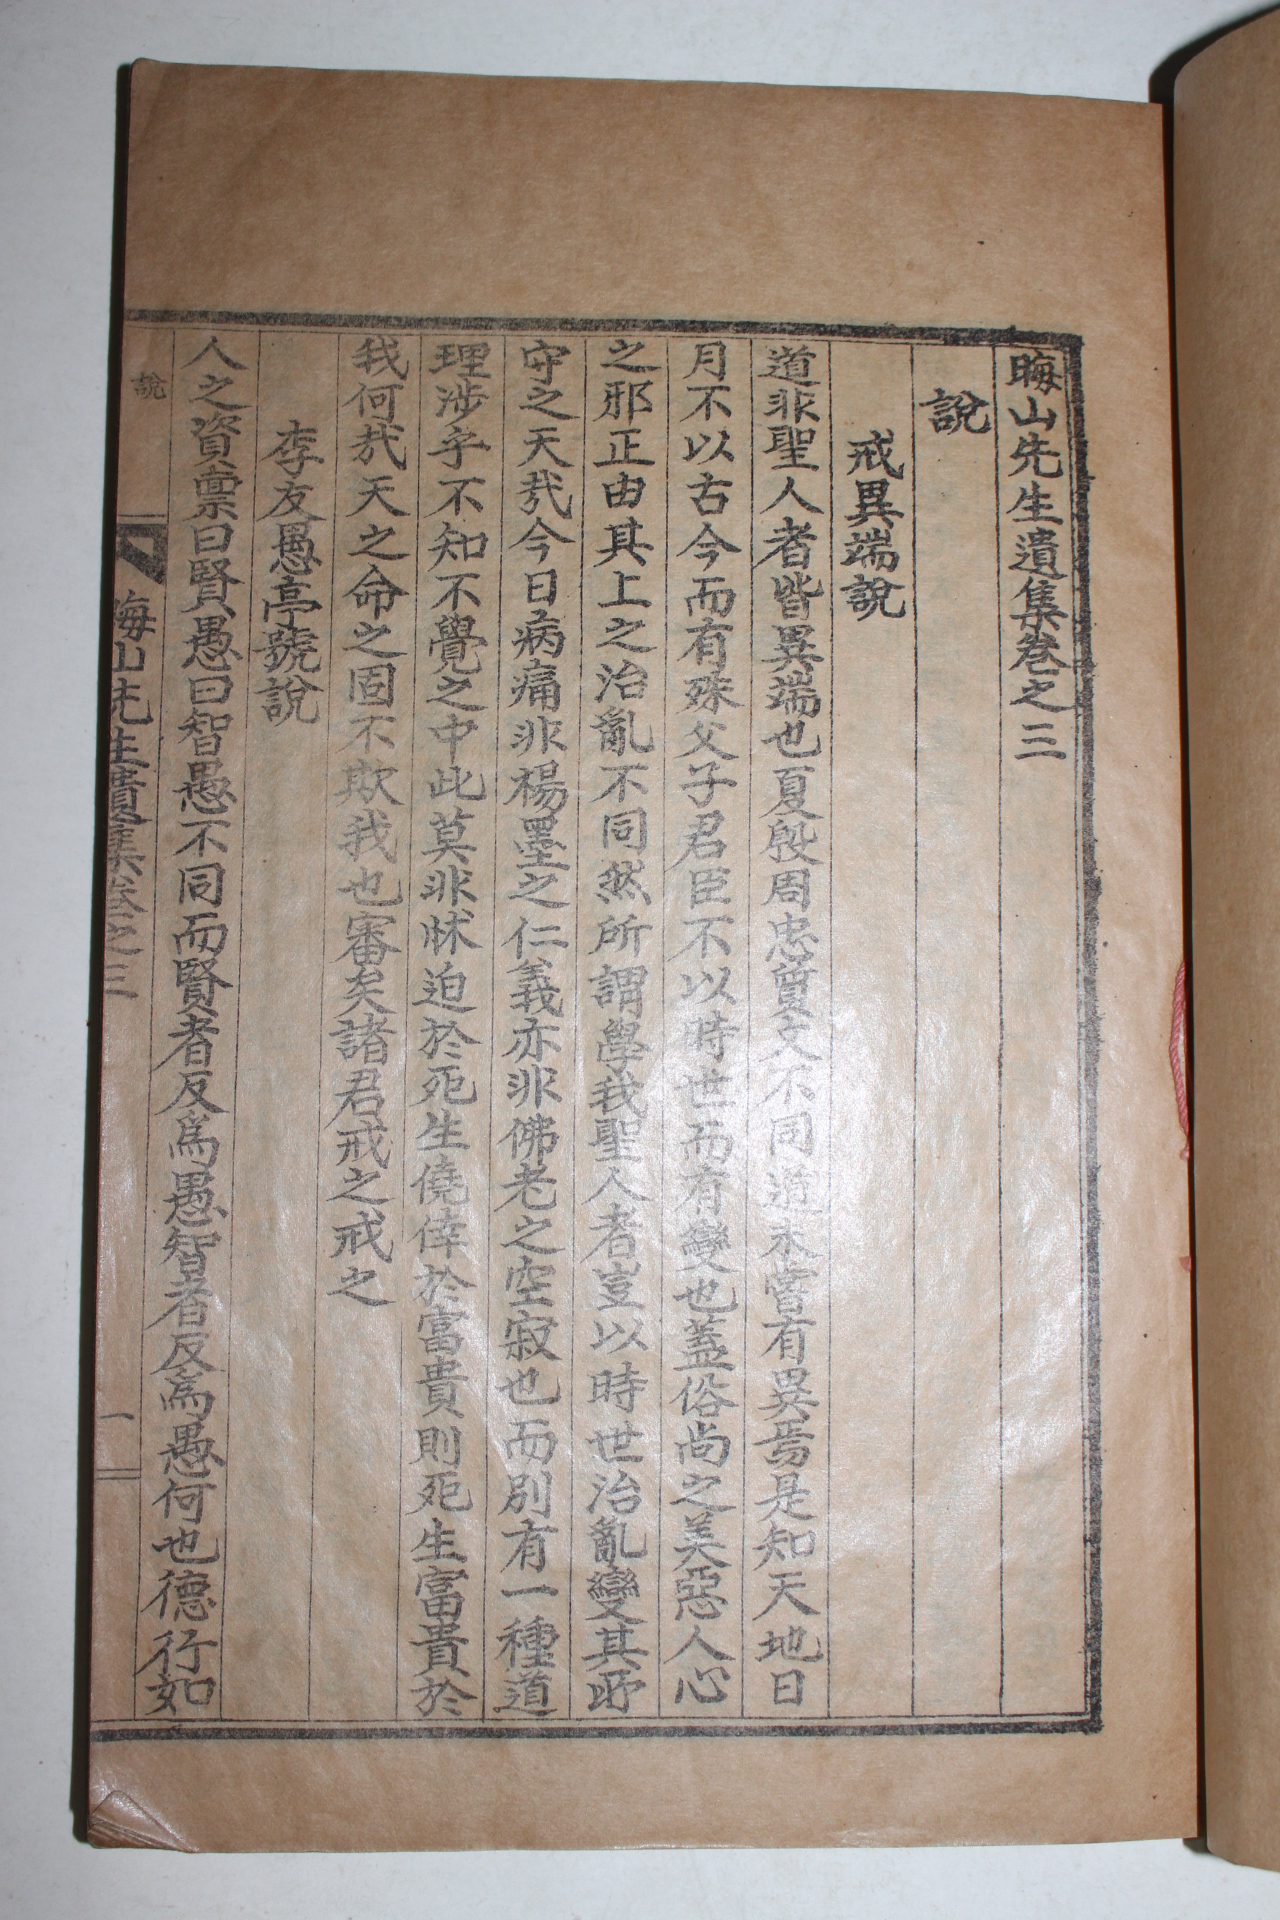 晦山先生遺集卷之三
說
戒異端說
道非聖人者皆異端也夏殷周忠質文不同道未嘗有異焉是知天地日
月不以古今而有殊父子君臣不以時世而有變也蓋俗尚之美惡人心
之邪正由其上之治亂不同然所謂學我聖人者豈以時世治亂變其所
守之天㢤今日病痛非楊墨之仁義亦非佛老之空寂也而別有一種道
理涉乎不知不覺之中此莫非怵迫於死生僥倖於富貴則死生富貴於
我何㢤天之命之固不欺我也審矣諸君戒之戒之
李友愚亭號說
人之資稟曰賢愚曰智愚不同而賢者反爲愚智者反爲愚何也德行如
說
晦山先生遺集卷之三
一